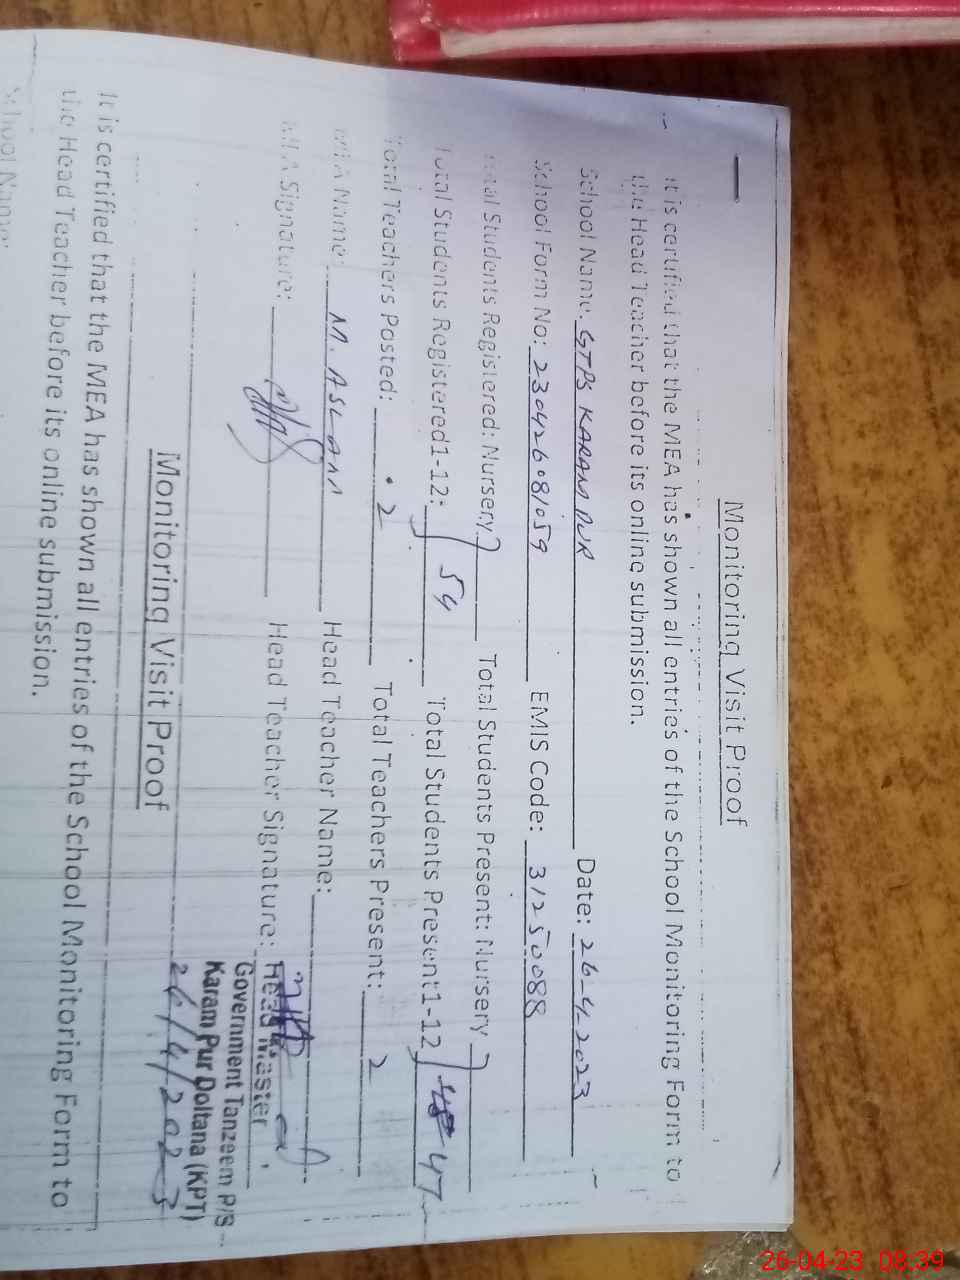 Monitoring Visit Proof
It is certified that the MEA has shown all entries of the School Monitoring Form to
the Head Teacher before its online submission.
School Name: GTPS KARAM PUR Date: 26-4-2023
School Form No: 230426081059 EMIS Code: 31250088
Total Students Registered: Nursery Total Students Present: Nursery
Total Students Registered1-12: 54 Total Students Present1-12 47
Total Teachers Posted: 2 Total Teachers Present: 2
MEA Name: M. ASLAM Head Teacher Name:
MEA Signature: Head Teacher Signature:
Head Master
Government Tanzeem P/S
Karam Pur Doltana (KPT)
26/4/2023
Monitoring Visit Proof
It is certified that the MEA has shown all entries of the School Monitoring Form to
the Head Teacher before its online submission.
School Name:
26-04-23 08:39